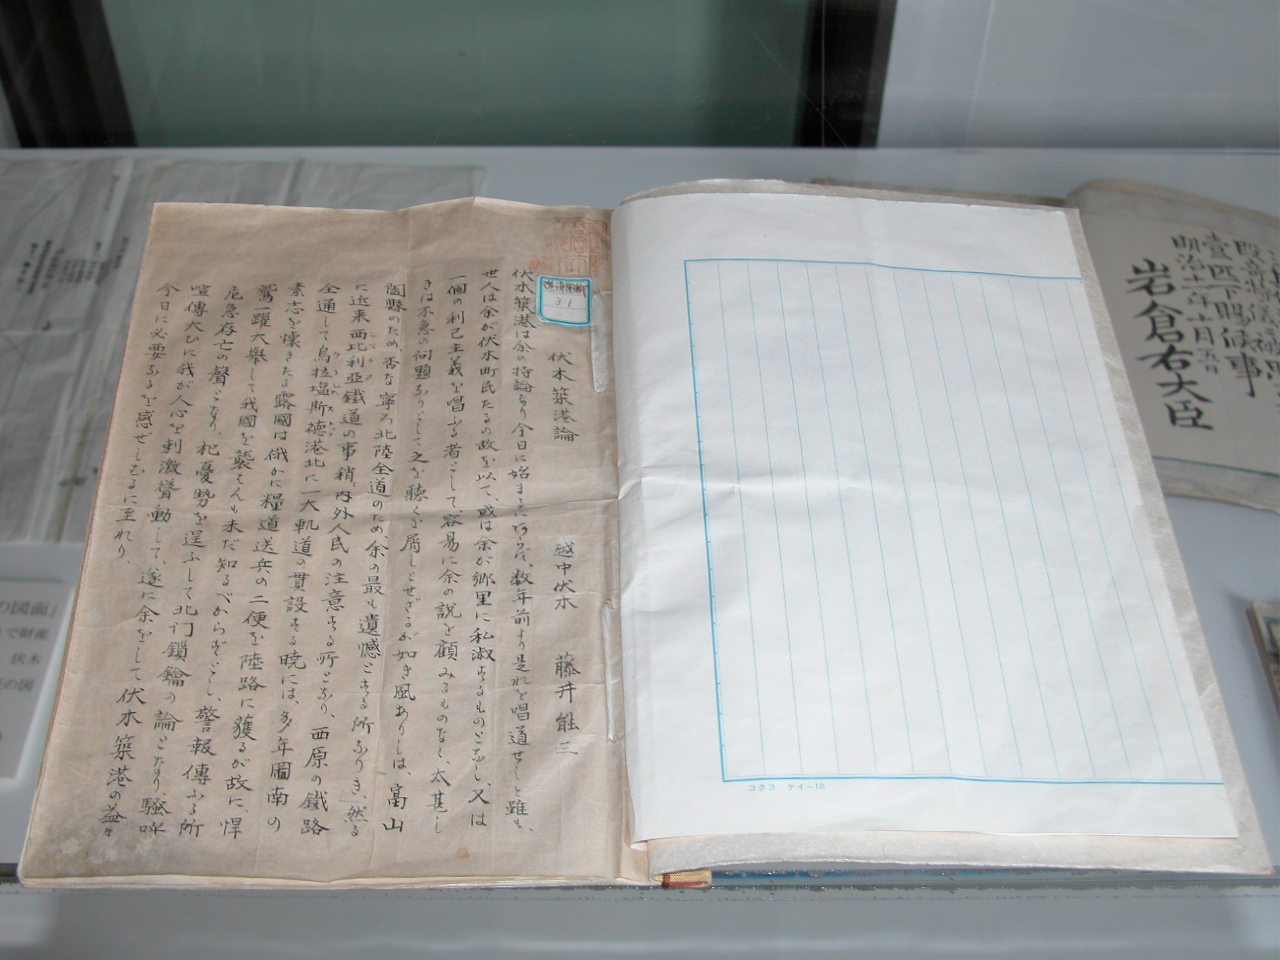 伏木築港論
越中伏木 藤井能三
伏木築港は余の持論なり今日に始まるにあらず、数年前より是れを唱道せしと雖も、
世人は余が伏木町民たるの故を以て、或は余が郷里に私淑するものとなし、又は
一個の利己主義を唱ふる者として容易に余の説を顧みるものなく、太甚し
きは不急の問題なりとして之を聴くを屑しとせざるが如き風ありしは、富山
闔縣のため、否な寧ろ北陸全道のため、余の最も遺憾とする所なりき、然る
に近来西比利亜鐵道の事稍、内外人民の注意する所となり、西原の鐵路
全通して烏拉塩斯徳港北に一大軌道の貫設する暁には、多年圖南の
素志を懐きたる露國は俄かに糧道送兵の二便を陸路に獲るが故に、悍
鷲一躍大舉して我國を襲はんも未だ知るべからずとし、警報傳ふる所
危急存亡の聲となり、杞憂勢を逞ふして北門鎖鑰の論となり、騒呼
喧傳大ひに我が人心を刺激聳動して、遂に余をして伏木築港の益々
今日に必要なるを感ぜしむるに至れり、
31
コクヨ ケイ-10
壹匹下賜候事
明治十一年十月五日
岩倉右大臣
の図面」
で財産
伏木
の図